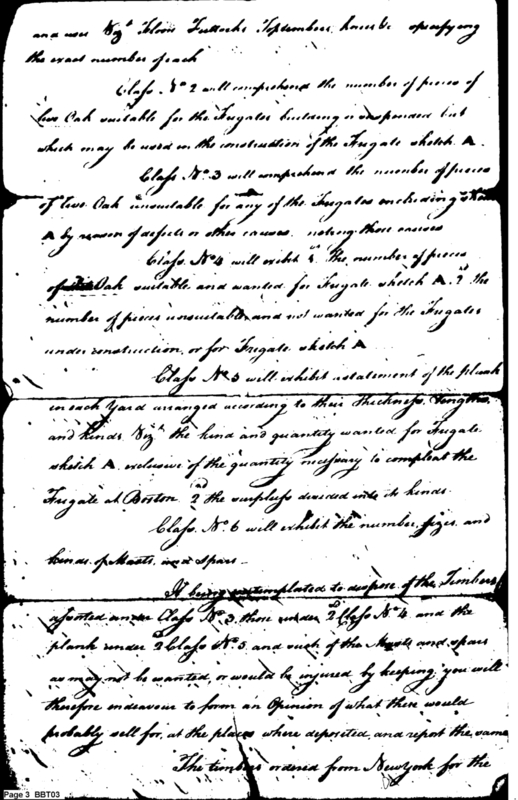 and uses Viz^t Floors Futtocks Toptimbers, knees &c specifying
the exact number of each
Class No 2 will comprehend the number of pieces of
live Oak suitable for the Frigates building or suspended but
which may be used in the construction of the Frigate sketch A.
Class No. 3 will comprehend the number of pieces
of live Oak unsuitable for any of the Frigates including sketch
A by reason of defects or other causes, noting those causes
Class No 4 will exhibit 1st The number of pieces
of Oak suitable and wanted for Frigate sketch A. 2nd the
number of pieces unsuitable, and not wanted for the Frigates
under construction, or for Frigate sketch A
Class No 5 will exhibit a statement of the plank
in each Yard arranged according to their thickness, lengths,
and kinds, Viz^t the kind and quantity wanted for Frigate
sketch A. exclusive of the quantity necessary to compleat the
Frigate at Boston 2nd the surpluss divided into its kinds.
Class No. 6 will exhibit the number, sizes, and
kinds of Masts, and spars—
It being contemplated to dispose of the Timbers
assorted under Class No 3, those under 2nd Class No 4, and the
plank under 2nd Class No 5, and such of the Masts and spars
as may not be wanted, or would be injured by keeping you will
therefore endeavour to form an Opinion of what these would
probably sell for, at the places where deposited, and report the same
The timbers ordered from New York for the
Page 3 BBT03